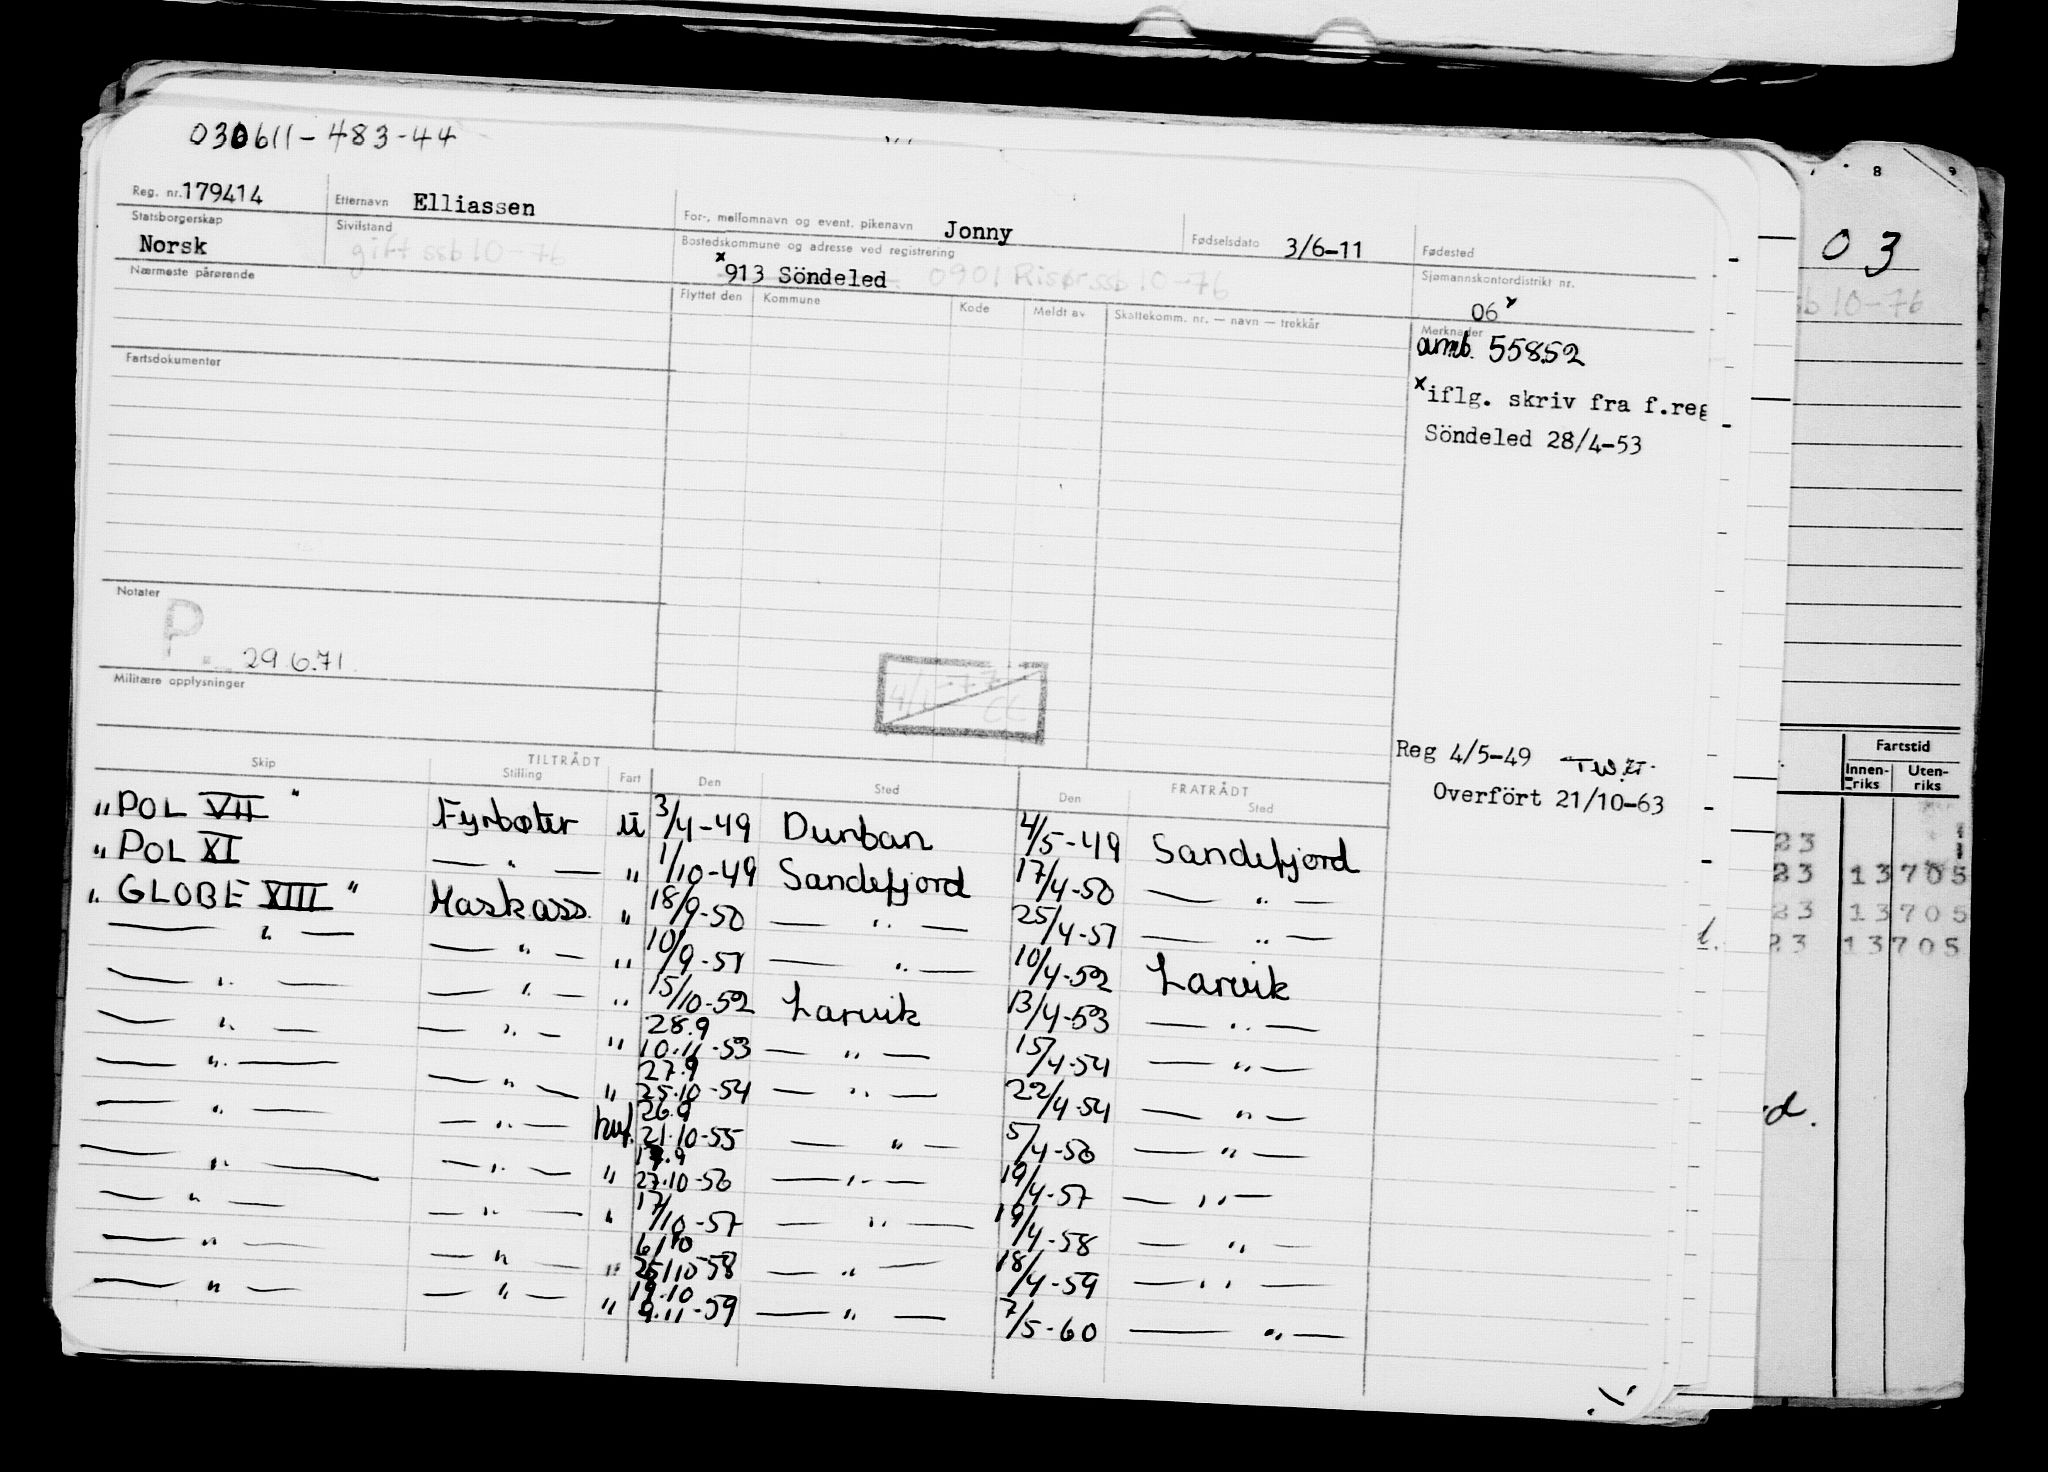 030611-483-44
Reg. nr. 179414 Etternavn Elliassen For-, mellomnavn og event. pikenavn Jonny Fødselsdato 3/6-11 Fødested
Statsborgerskap Norsk Sivilstand gift ssb 10-76 Bostedskommune og adresse ved registrering x 913 Söndeled 0901 Risør ssb 10-76 Sjømannskontordistrikt nr. 06 x
Nærmeste pårørende Flyttet den Kommune Kode Meldt av Skattekomm. nr. — navn — trekkår Merknader
amb. 55852
x iflg. skriv fra f.reg
Söndeled 28/4-53
Fartsdokumenter
Notater
P. 29.6.71.
Militære opplysninger
Reg 4/5-49
Overført 21/10-63
TILTRÅDT FRATRÅDT
Skip Stilling Fart Den Sted Den Sted
"POL VII" Fyrbøter U 3/4-49 Durban 4/5-49 Sandefjord
"POL XI — " — " 1/10-49 Sandefjord 17/4-50 — " —
"GLOBE XIII" Maskass. " 18/9-50 — " — 25/4-51 — " —
— " — — " — " 10/9-51 — " — 10/4-52 Larvik
— " — — " — " 15/10-52 Larvik 13/4-53 — " —
— " — — " — " 28.9 10.11-53 — " — 15/4-54 — " —
— " — — " — " 27.9 25.10-54 — " — 22/4-54 — " —
— " — — " — hvf. 26.9 21.10-55 — " — 5/4-56 — " —
— " — — " — " 17.9 27.10-56 — " — 19/4-57 — " —
— " — — " — " 17/10-57 — " — 19/4-58 — " —
— " — — " — " 6/10 25/10-58 — " — 18/4-59 — " —
— " — — " — " 19.10 9.11-59 — " — 7/5-60 — " —
8 9
03
ssb 10-76
Fartstid
Innen-riks Uten-riks
23
23 13705
23 13705
23 13705
d.